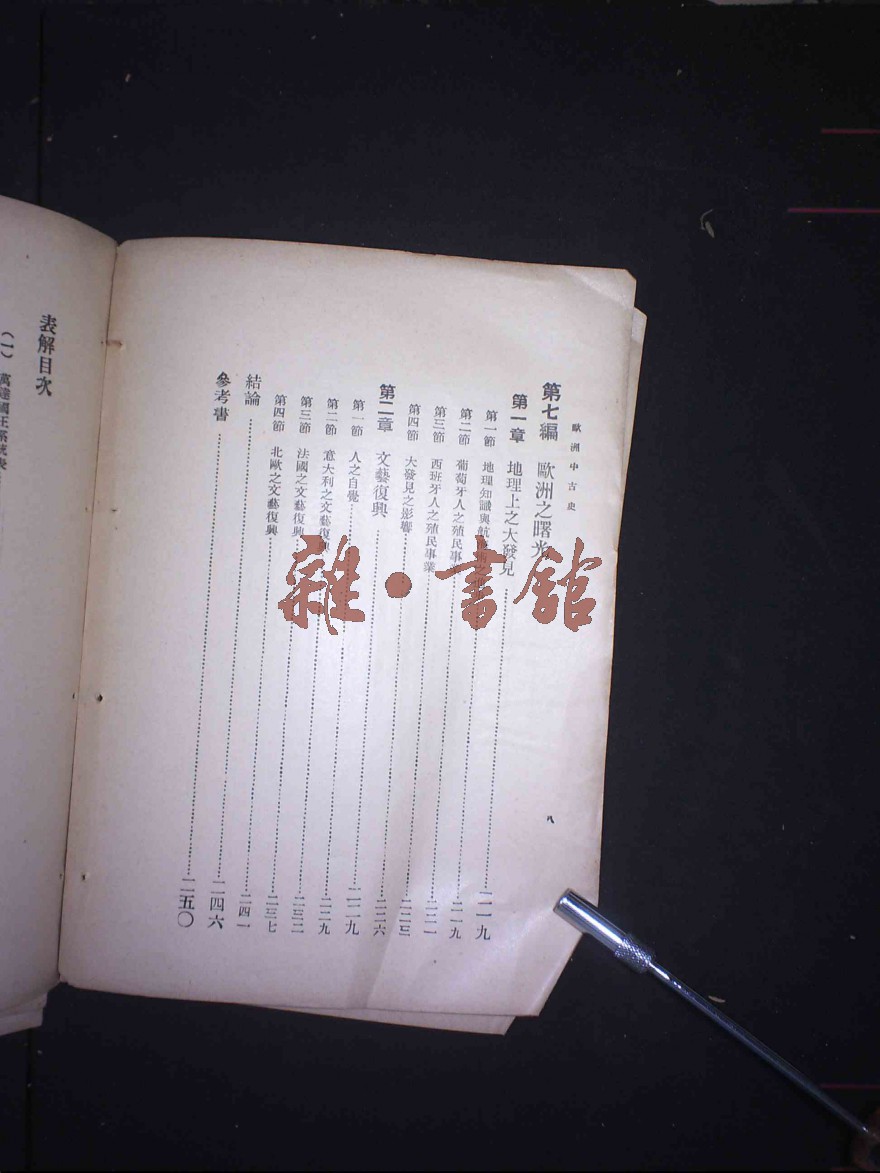 歐洲中古史
第七編 歐洲之曙光
第一章 地理上之大發見……二一九
第一節 地理知識與航……二一九
第二節 葡萄牙人之殖民事……二二一
第三節 西班牙人之殖民事業……二二三
第四節 大發見之影響……二二六
第二章 文藝復興……二二九
第一節 人之自覺……二二九
第二節 意大利之文藝復興……二三二
第三節 法國之文藝復興……二三七
第四節 北歐之文藝復興……二四一
結論……二四六
參考書……二五〇
八
表解目次
雜·書館